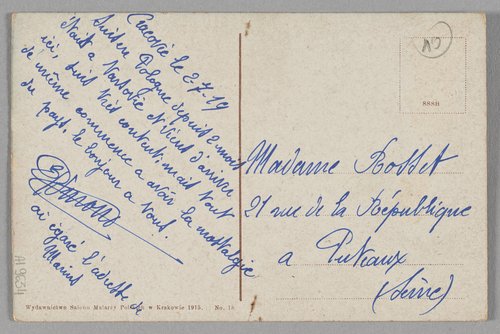 Cracovie le 2-7-19
Suis en Pologne depuis 2 mois
Nous a Varsovie et viens d'arriver
ici, suis très content mais tout
de même commence a avoir la nostalgie
du pays. le bonjour a tous.
ai égaré l'adresse de
Marius
Madame Rosset
21 rue de la République
a Puteaux
(Seine)
888B
Wydawnictwo Salonu Malarzy Polskich w Krakowie 1915. No. 18